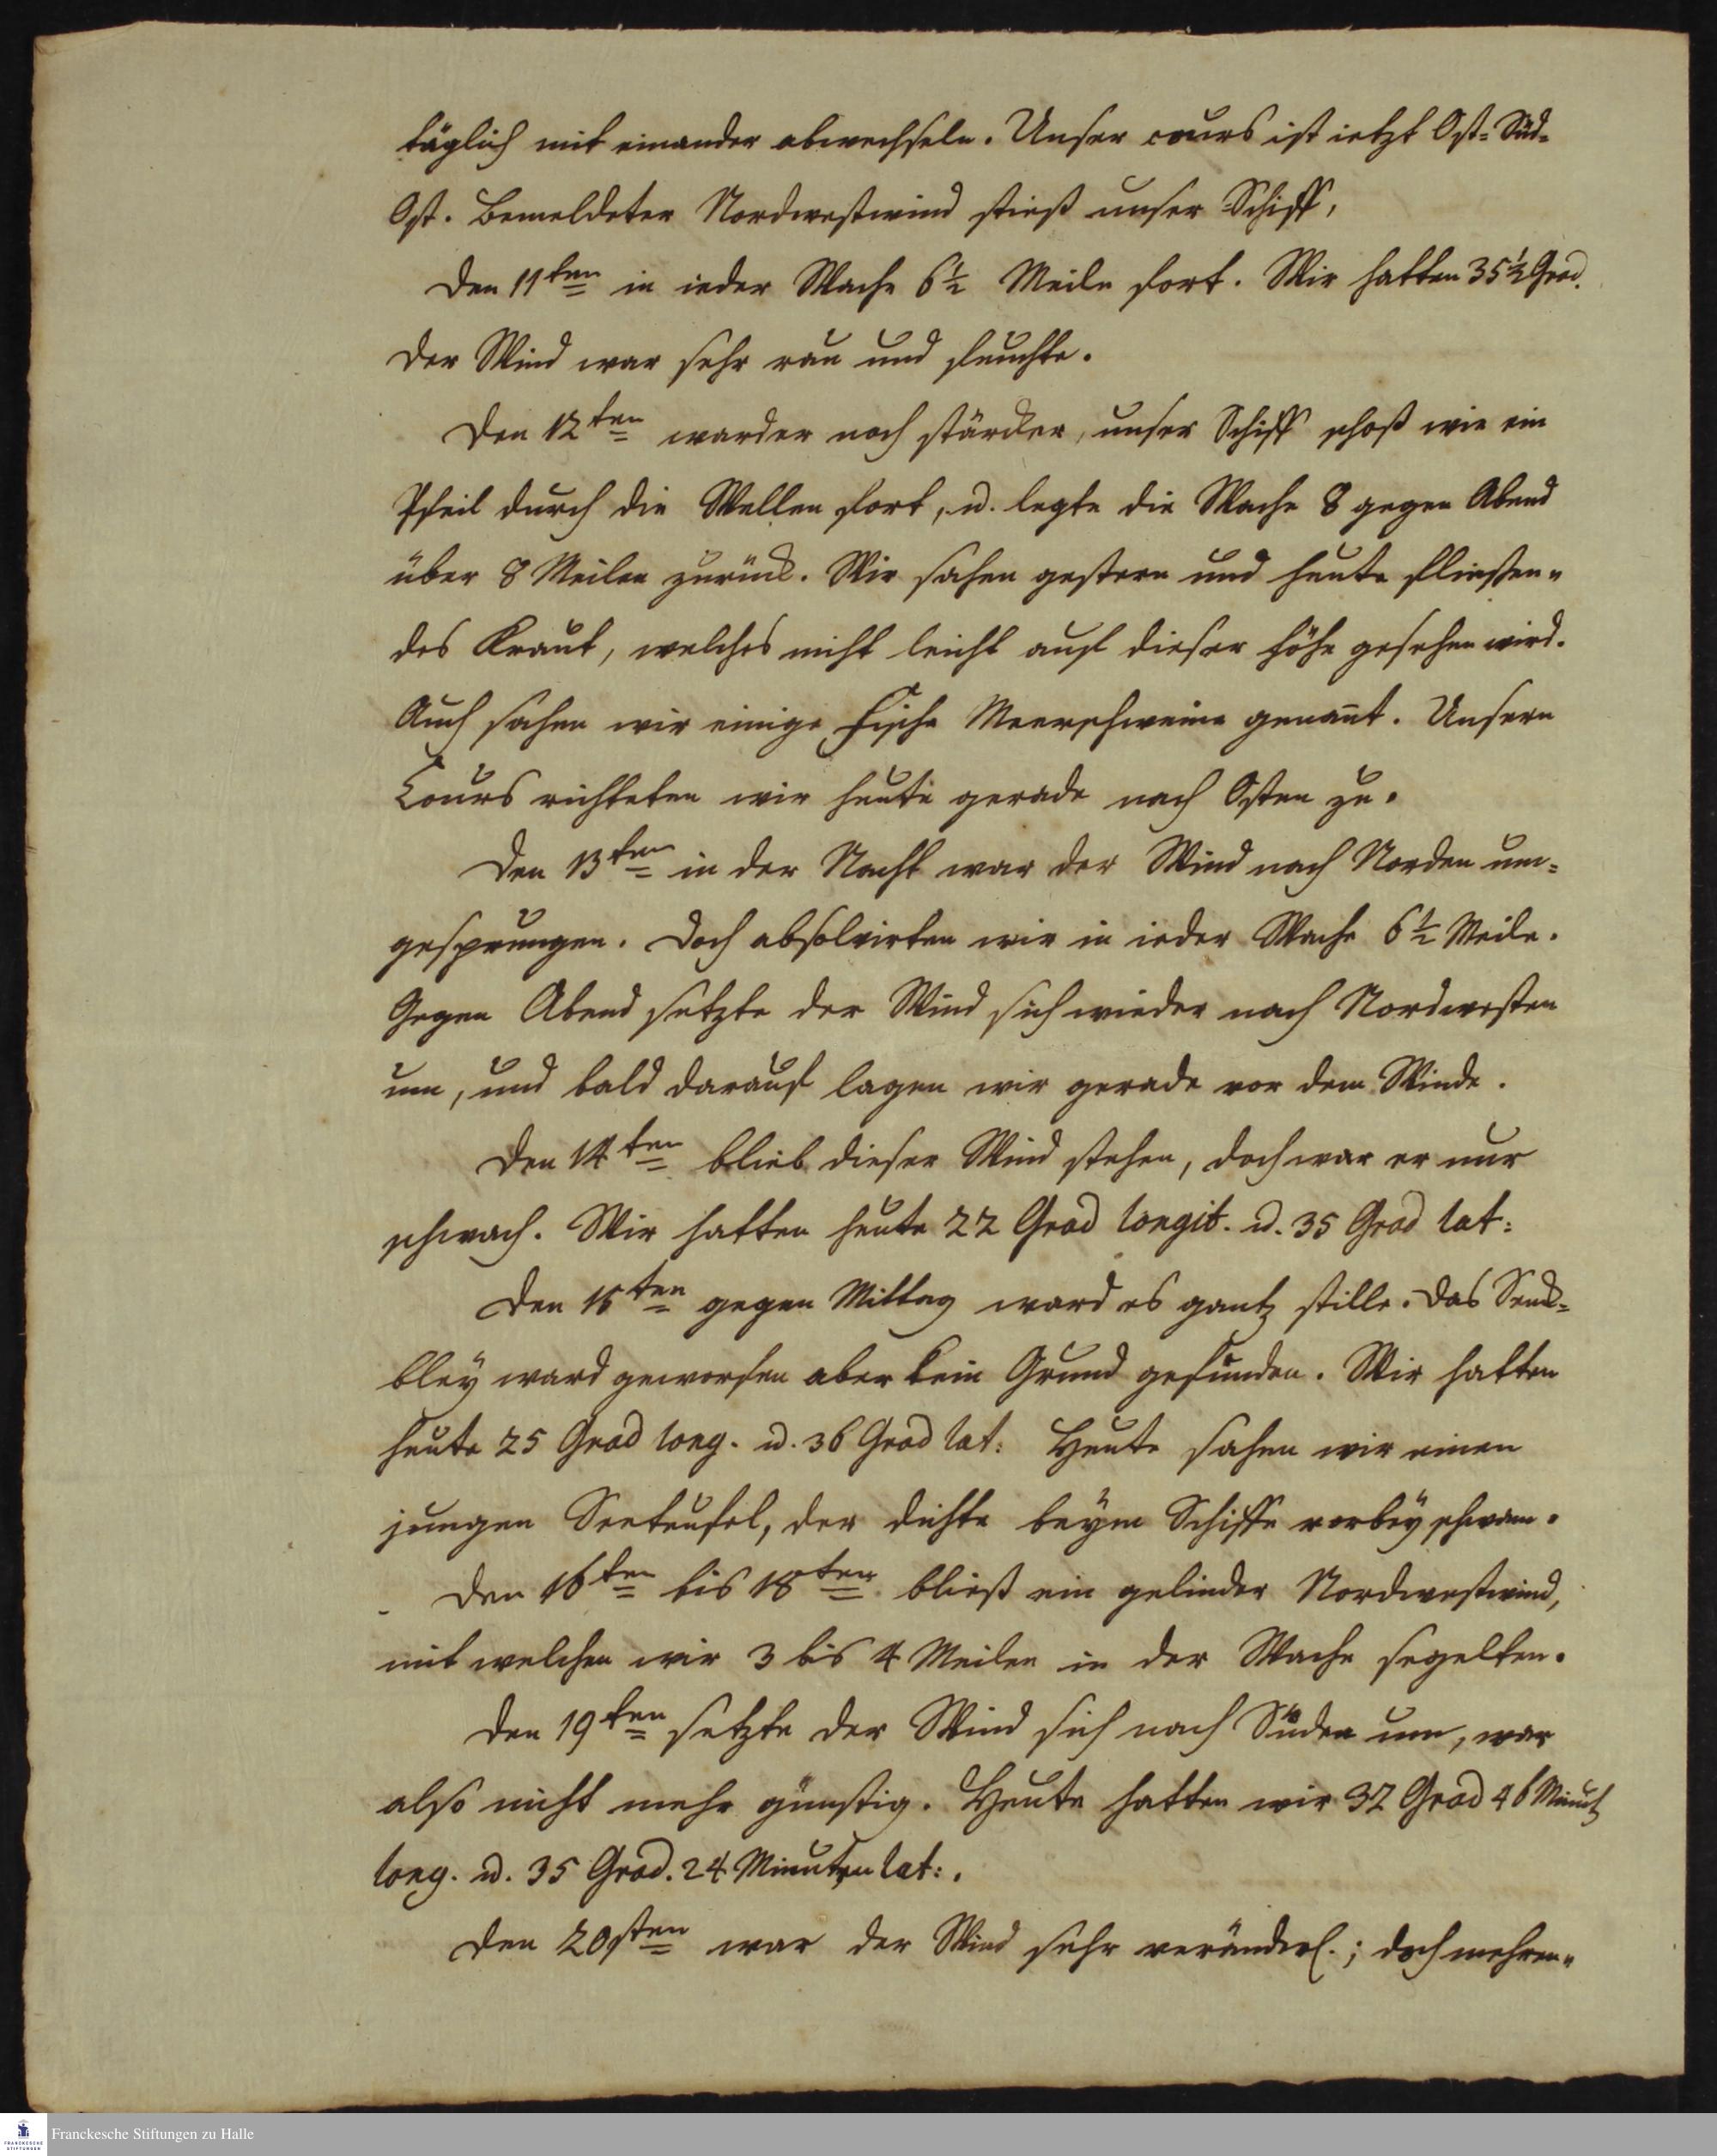 täglich mit einander abwechseln. Unser cours ist ietzt Ost-Süd-
Ost. Bemeldeter Nordwestwind stieß unser Schiff,
Den 11ten in ieder Wache 6½ Meile fort. Wir hatten 35½ Grad.
Der Wind war sehr rau und feuchte.
Den 12ten ward er noch stärcker, unser Schiff schoß wie ein
Pfeil durch die Wellen fort, u. legte die Wache 8 gegen Abend
über 8 Meilen zurück. Wir sahen gestern und heute fliessen-
des Kraut, welches nicht leicht auf dieser Höhe gesehen wird.
Auch sahen wir einige Fische Meerschweine genañt. Unsern
Cours richteten wir heute gerade nach Osten zu.
Den 13ten in der Nacht war der Wind nach Norden um-
gesprungen. Doch absolvirten wir in ieder Wache 6½ Meile.
Gegen Abend setzte der Wind sich wieder nach Nordwesten
um, und bald darauf lagen wir gerade vor dem Winde.
Den 14ten blieb dieser Wind stehen, doch war er nur
schwach. Wir hatten heute 22 Grad longit. u. 35 Grad lat:
Den 15ten gegen Mittag ward es gantz stille. Das Senck-
bley ward geworfen aber kein Grund gefunden. Wir hatten
heute 25 Grad long. u. 36 Grad lat: Heute sahen wir einen
jungen Seeteufel, der dichte beym Schiffe vorbey schwam.
Den 16ten bis 18ten bließ ein gelinder Nordwestwind,
mit welchen wir 3 bis 4 Meilen in der Wache segelten.
Den 19ten setzte der Wind sich nach Süden um, war
also nicht mehr günstig. Heute hatten wir 32 Grad 46 Minut
long. u. 35 Grad. 24 Minuten lat:.
Den 20sten war der Wind sehr veränderl.; doch mehren-
Franckesche Stiftungen zu Halle